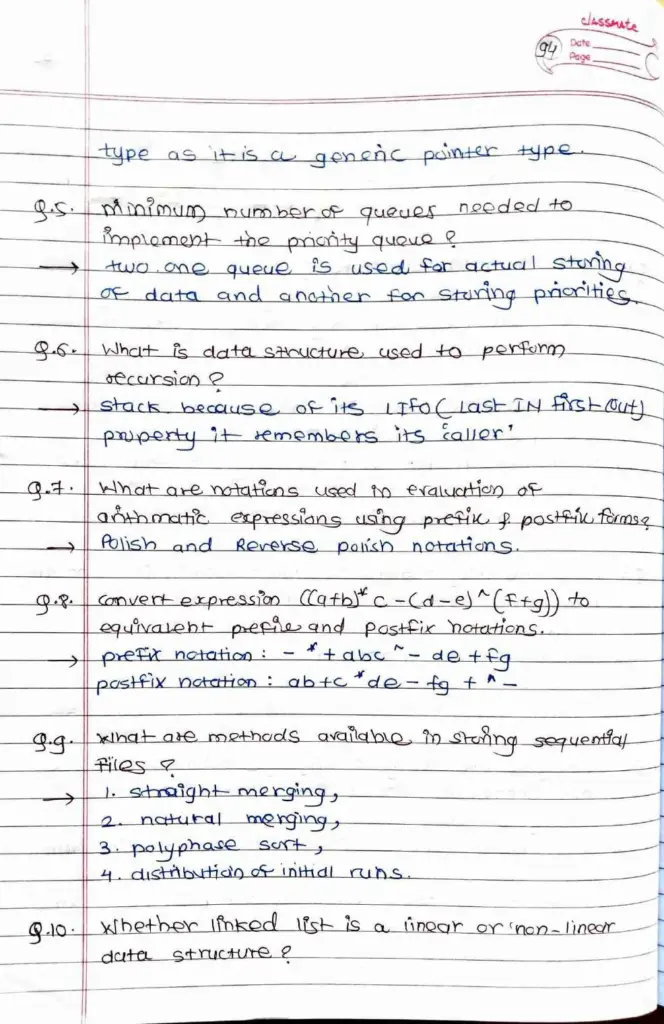 classmate
Date
Page
94
type as it is a generic pointer type.
Q.5. Minimum number of queues needed to
implement the priority queue ?
→ two. one queue is used for actual storing
of data and another for storing priorities.
Q.6. What is data structure used to perform
recursion ?
→ stack because of its LIFO (Last IN first out)
property it remembers its 'caller'
Q.7. What are notations used in evaluation of
arithmatic expressions using prefix & postfix forms?
→ Polish and Reverse polish notations.
Q.8. convert expression ((a+b)* c -(d-e)^(f+g)) to
equivalent prefix and Postfix notations.
→ prefix notation : - * + abc ^ - de + fg
postfix notation : ab+c *de - fg + ^ -
Q.9. What are methods available in storing sequential
files ?
→ 1. straight merging,
2. natural merging,
3. polyphase sort,
4. distribution of initial runs.
Q.10. Whether linked list is a linear or non-linear
data structure ?